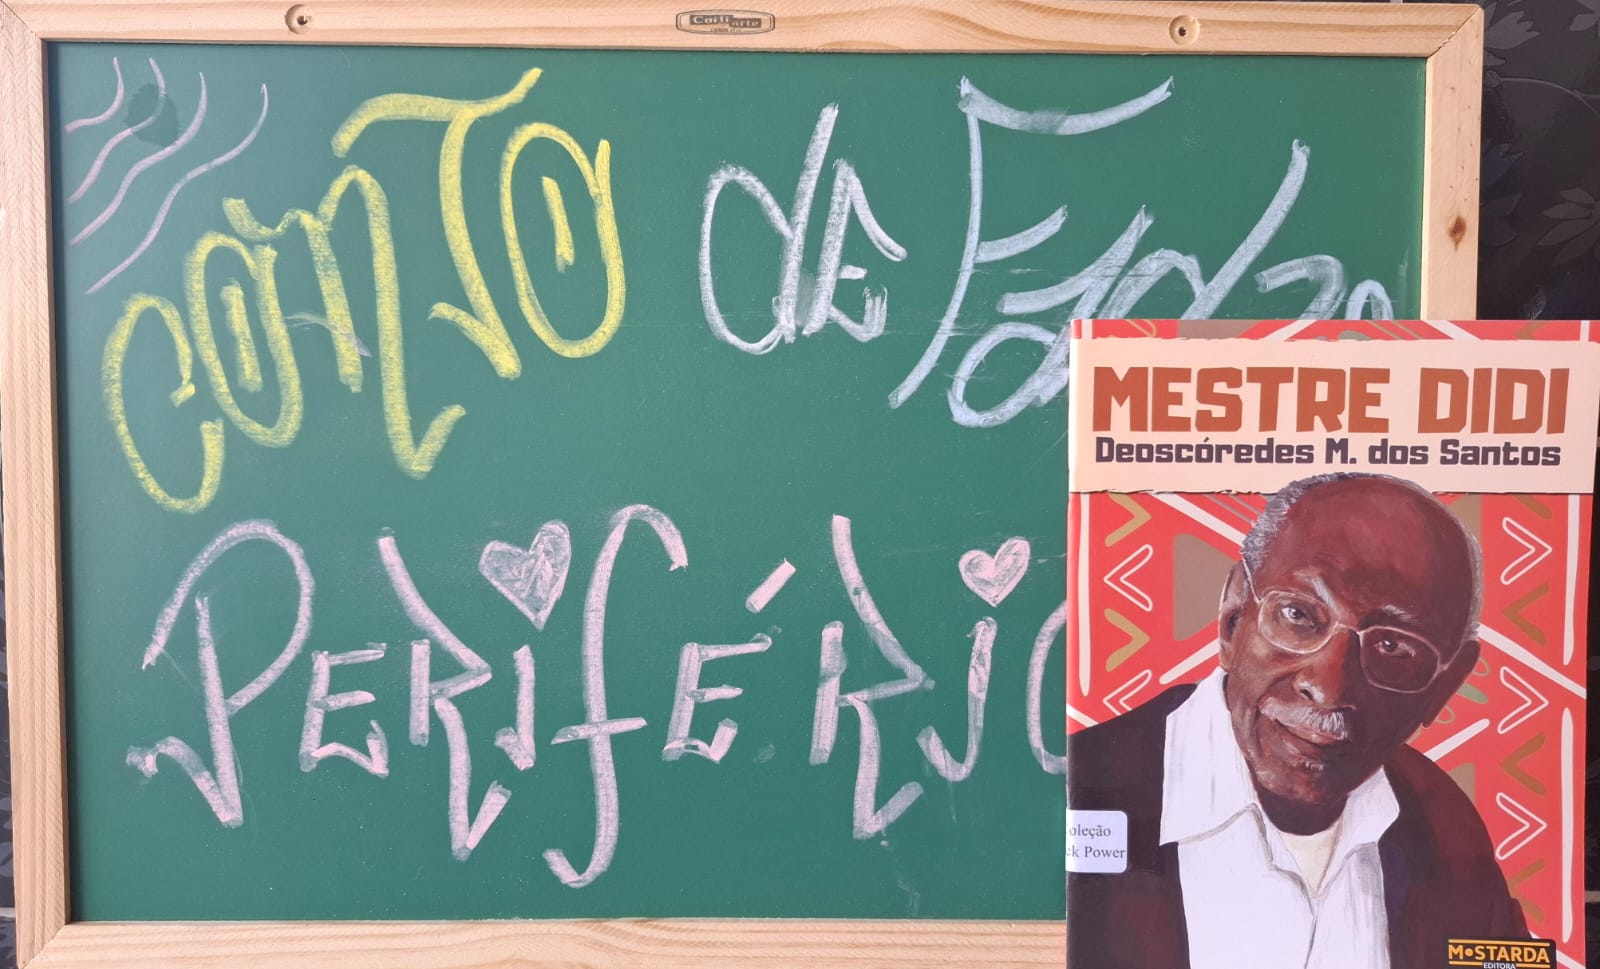 Corti arte
CONTO dE Fada
PERIFÉRIC
MESTRE DIDI
Deoscóredes M. dos Santos
oleção
ck Power
MOSTARDA
EDITORA